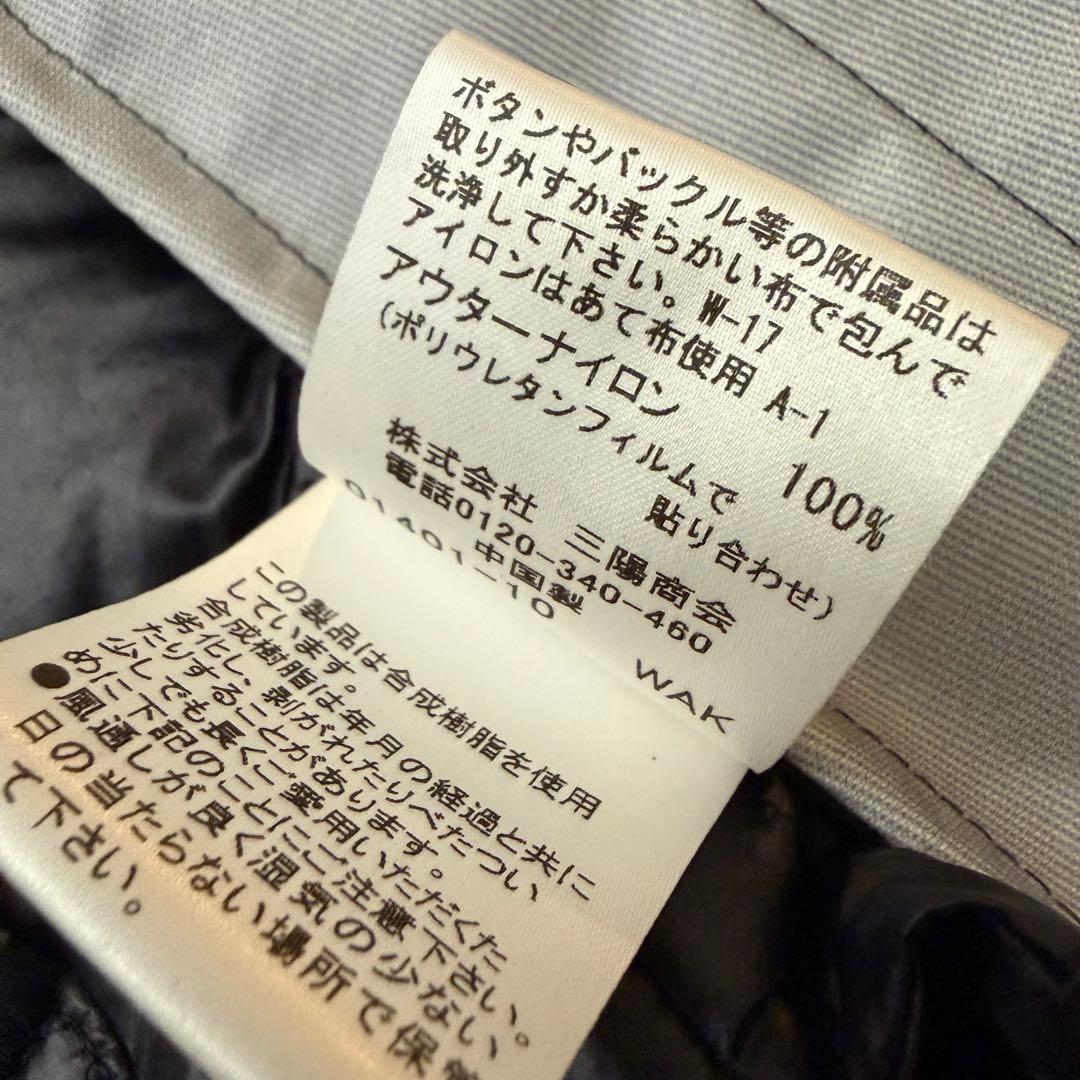 ボタンやバックル等の附属品は
取り外すか柔らかい布で包んで
洗浄して下さい。W-17
アイロンはあて布使用 A-1
アウターナイロン 100%
(ポリウレタンフィルムで
貼り合わせ)
株式会社 三陽商会
電話0120-340-460
中国製
01401-10
WAK
この製品は合成樹脂を使用
しています。
合成樹脂は年月の経過と共に
劣化し、剥がれたりべたつい
たりすることがあります。
少しでも長くご愛用いただくた
めに下記のことにご注意下さい。
●風通しが良く湿気の少ない、
日の当たらない場所で保管
て下さい。